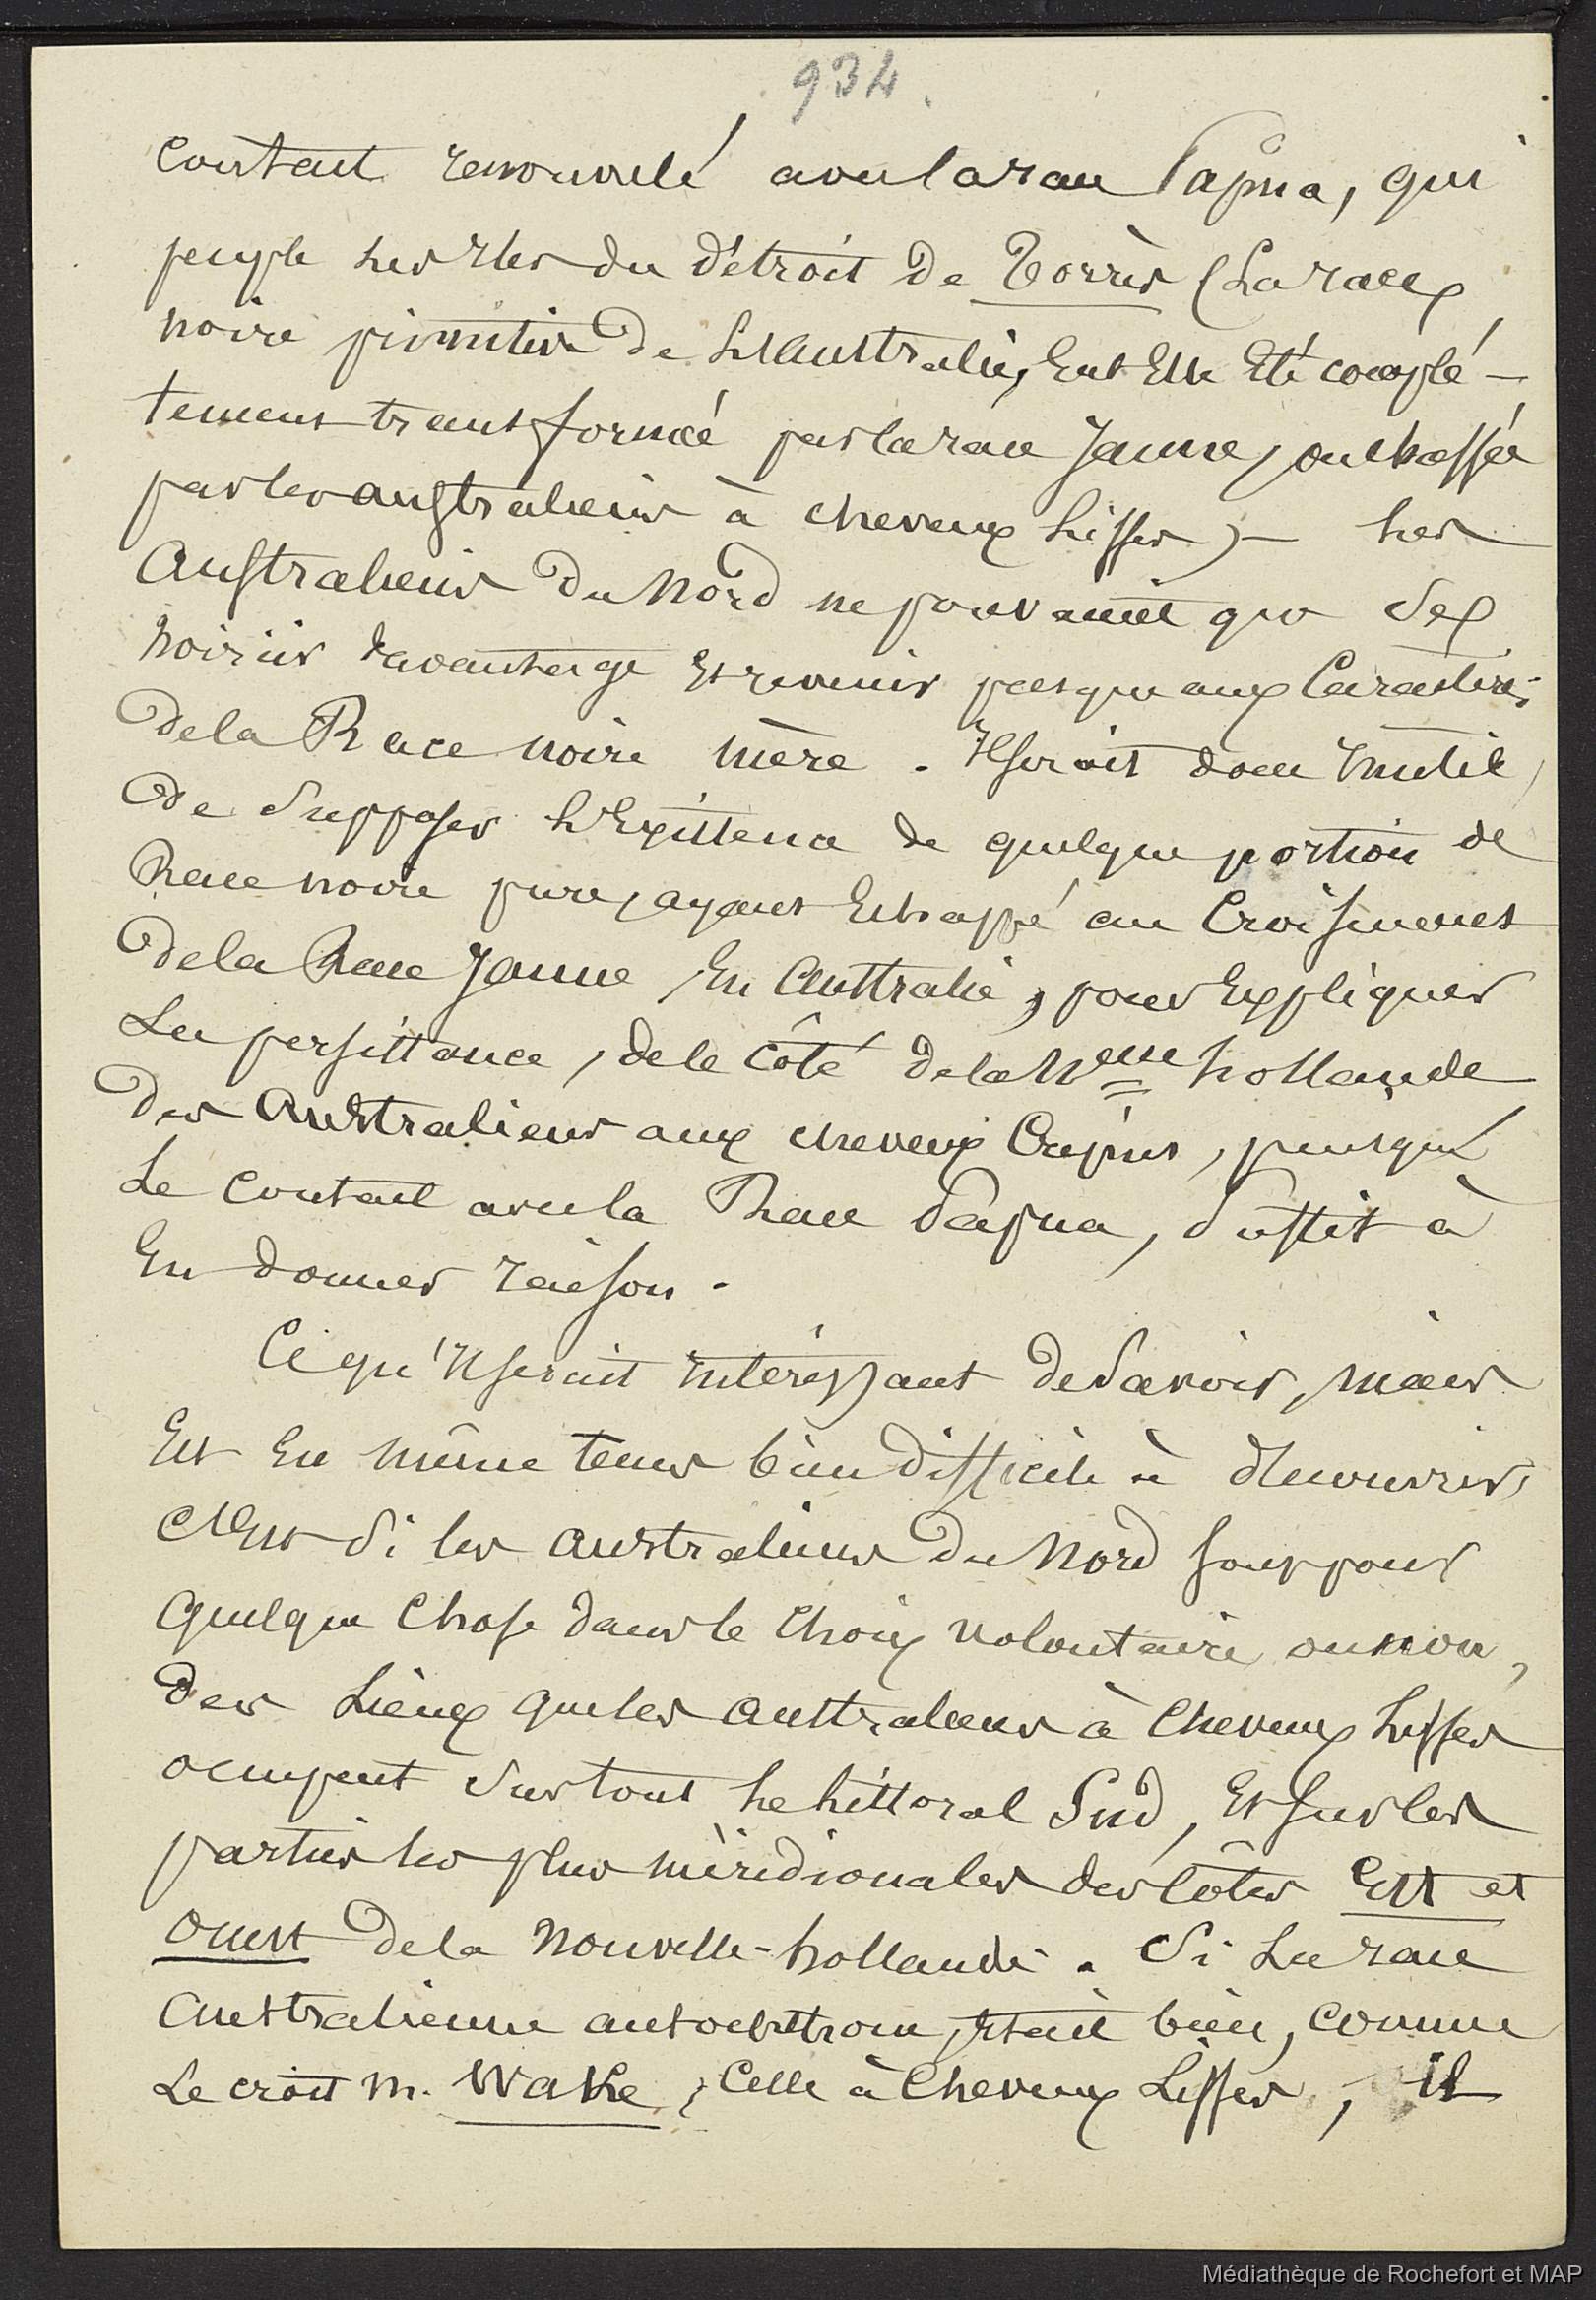 934.
Contact renouvelé avec la race Pàpua, qui
peuple les Iles du Détroit de Torrès (La race
noire primitive de L'Australie, eut Elle Eté complé-
tement transformée par la race Jaune, ou chassée
par les australiens à cheveux lisses) — les
Australiens du Nord ne pouvaient que Se
noircir davantage Et revenir presque aux Caractères
de la Race noire mère. Il serait donc Inutile,
de Supposer L'Existence de quelque portion de
Race noire pure, ayant Echappé au Croisement
de la Race Jaune En Australie, pour Expliquer
La persistance, de le Côté de la Nelle hollande
des Australiens aux cheveux Crépus, puisque
Le Contact avec la Race Pàpua, Suffit à
En donner raison.
Ce qu'Il serait Intéressant de Savoir, mais
Est En même tems bien difficile à découvrir,
C'Est Si les australiens du Nord sont pour
quelque Chose dans le Choix volontaire ou non,
des Lieux que les australiens à Cheveux Lisses
occupent Surtout le littoral Sud, Et sur les
parties les plus méridionales des Côtes Est et
ouest de la Nouvelle-hollande. Si La race
Australienne autochtone, était bien, comme
Le croit M. Wake, Celle à Cheveux Lisses, il
Médiathèque de Rochefort et MAP